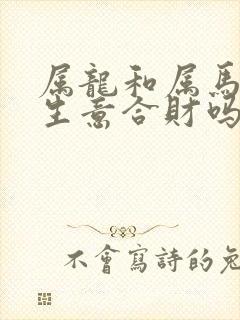 属龍和属馬
生意合財嗎
不會寫詩的兔